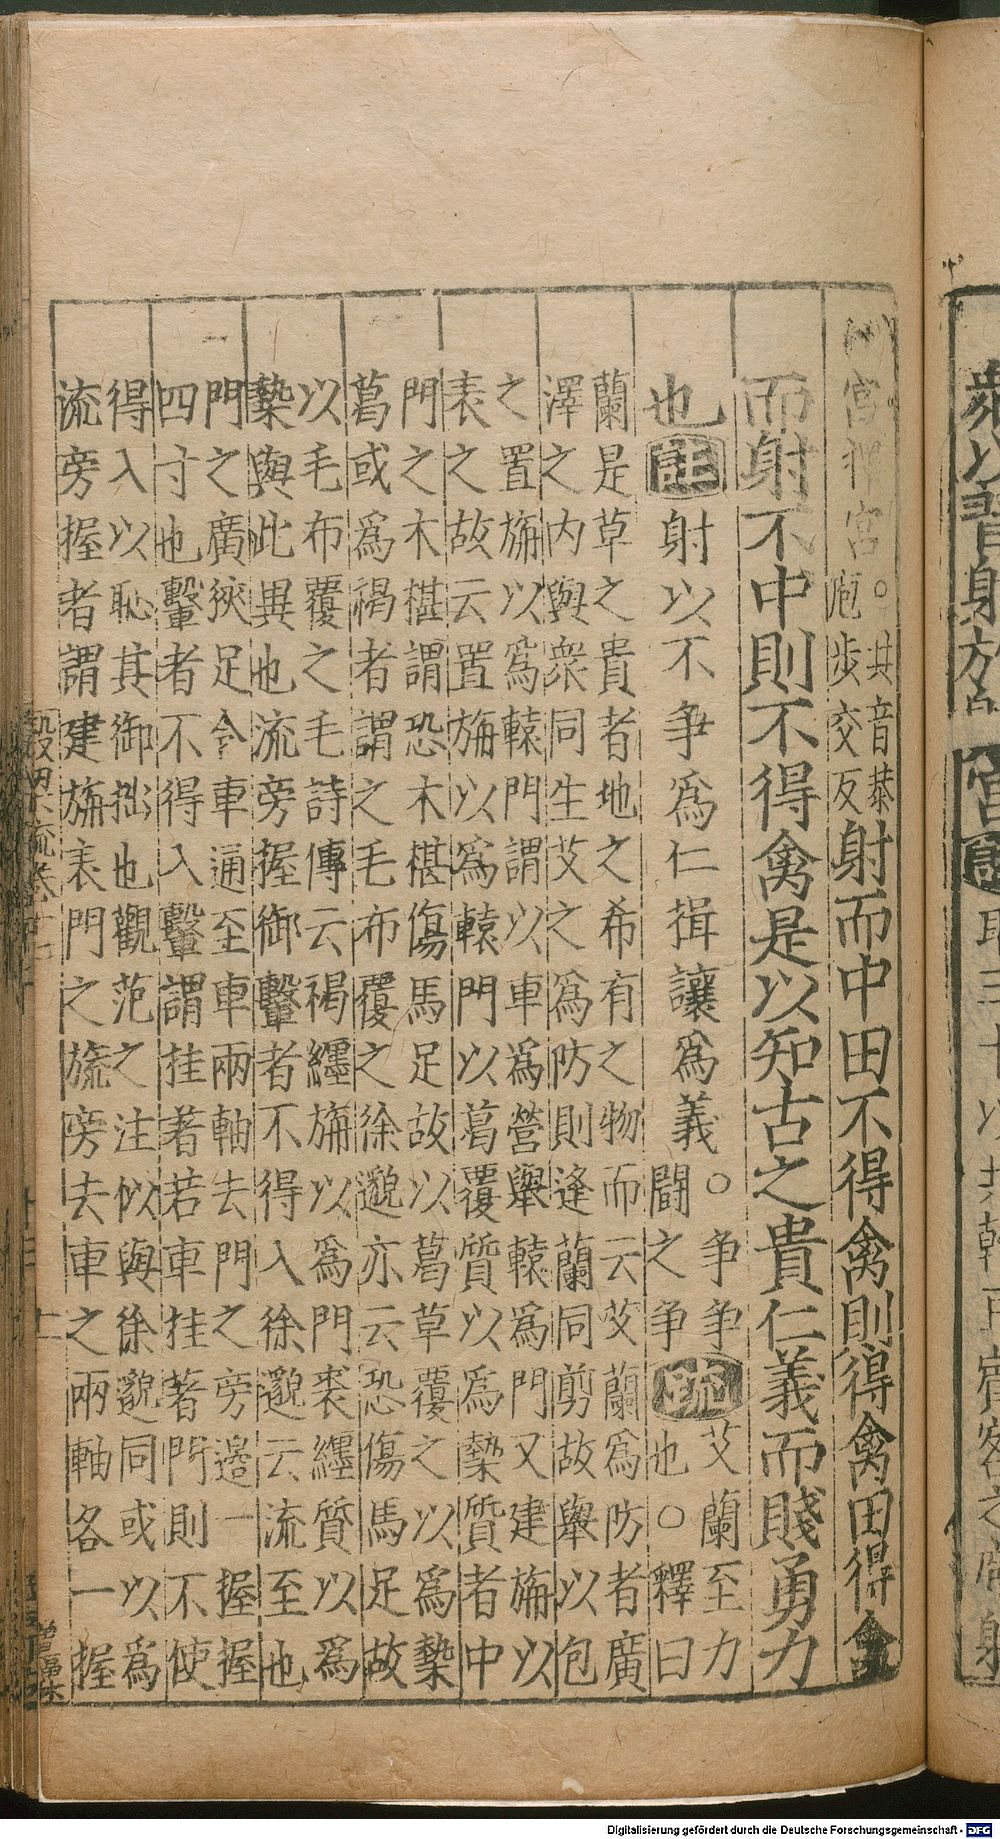 衆以習射於
宮 取三十以共乾豆賓客之庖射
宮卿宮。共音恭
庖步交反
射而中田不得禽則得禽田得禽
而射不中則不得禽是以知古之貴仁義而賤勇力
也註射以不爭爲仁揖讓爲義○爭爭
鬬之爭
疏艾蘭至力
也○釋曰
蘭是草之貴者地之希有之物而云艾蘭爲防者廣
澤之内與衆同生艾之爲防則逢蘭同剪故舉以包
之置旃以爲轅門謂以車爲營舉轅爲門又建旃以
表之故云置旃以爲轅門以葛覆質以爲槷質者中
門之木椹謂恐木椹傷馬足故以葛草覆之以爲槷
葛或爲褐者謂之毛布覆之徐邈亦云恐傷馬足故
以毛布覆之毛詩傳云褐纏旃以爲門裘纏質以爲
槷與此異也流旁握御轚者不得入徐邈云流至也
門之廣狹足令車通至車兩軸去門之旁邊一握握
四寸也轚者不得入轚謂挂著若車挂著門則不使
得入以恥其御拙也觀范之注似與徐邈同或以爲
流旁握者謂建旃表門之旒旁去車之兩軸各一握
Digitalisierung gefördert durch die Deutsche Forschungsgemeinschaft - DFG